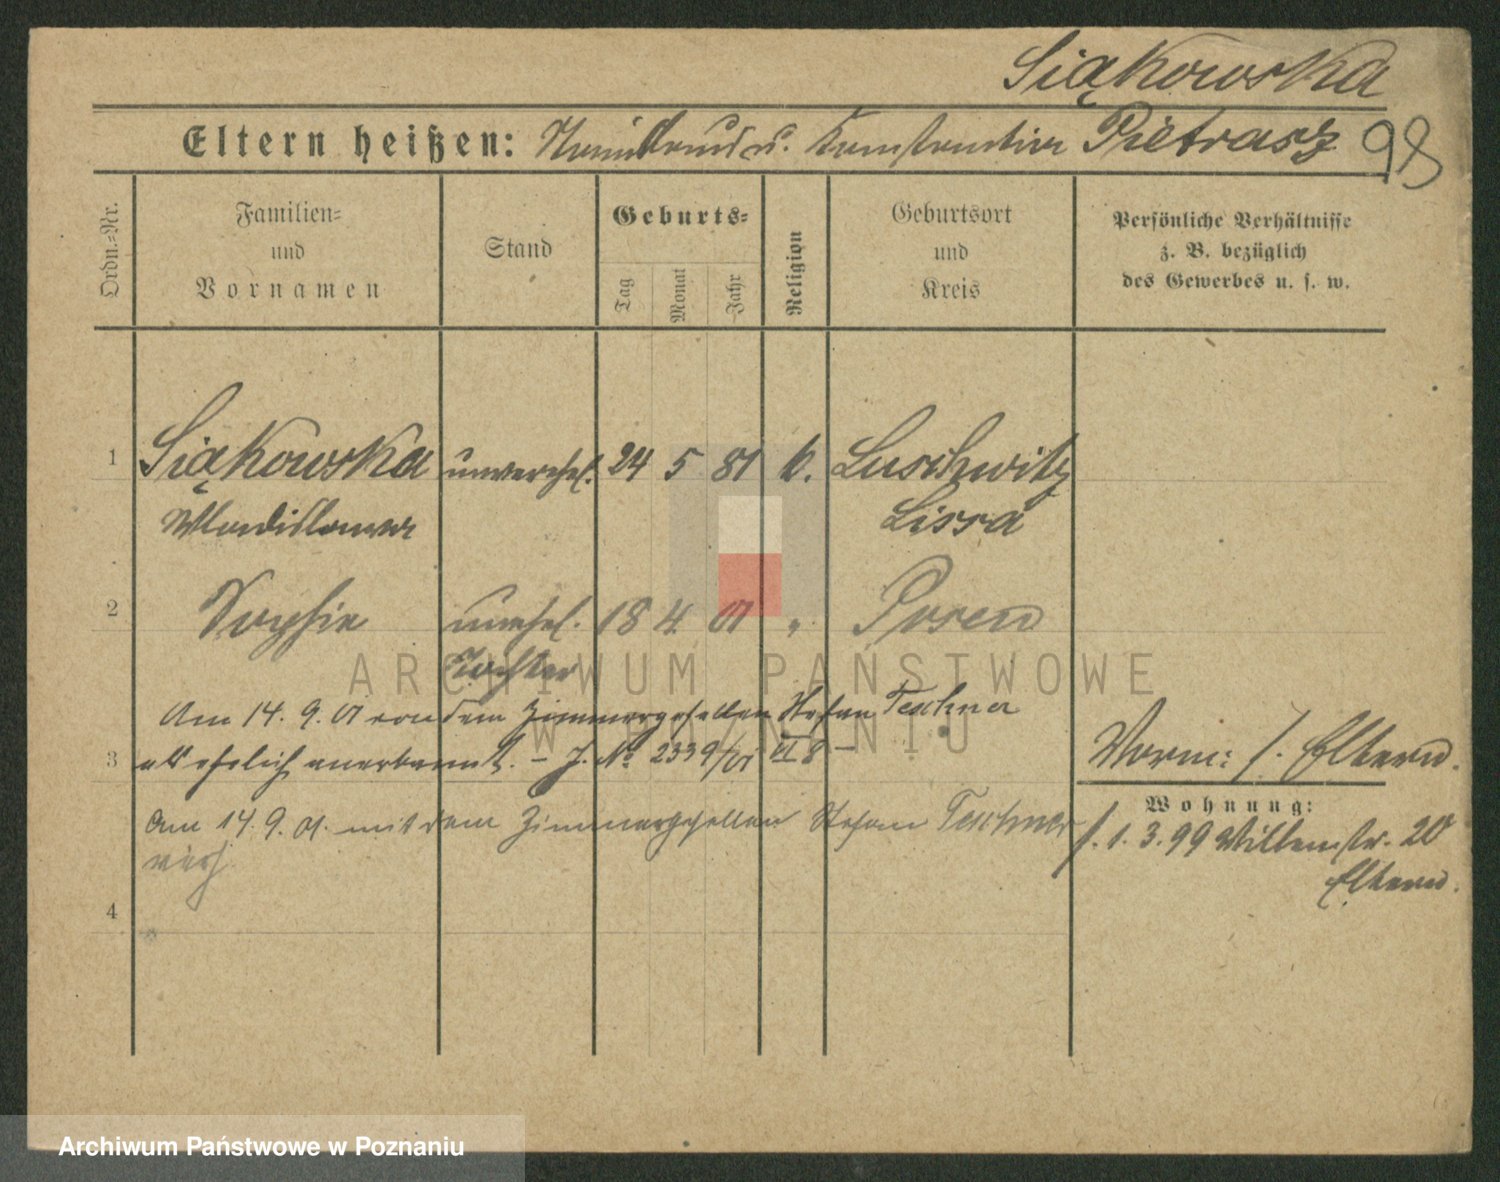 Siąkowska
Eltern heißen: u. Konstantin Pietrasz 98
Ordn.=Nr.
Familien=
und
Vornamen
Stand
Geburts=
Tag
Monat
Jahr
Religion
Geburtsort
und
Kreis
Persönliche Verhältnisse
z. B. bezüglich
des Gewerbes u. s. w.
1 Siąkowska unverehel. 24 5 81 k. Luschwitz
Wladislawa Lissa
2 Sophie unehel. 18 4 01 " Posen
Tochter
ARCHIWUM PAŃSTWOWE
W POZNANIU
Am 14. 9. 01 von dem Zimmergesellen Stefan Teschner
3 als ehelich anerkannt. – J. No 2339/01 VI 8 –
Vorm: s. Eltern.
Wohnung:
Am 14. 9. 01. mit dem Zimmergesellen Stefan Teschner
verh.
s. 1. 3. 99 Willemstr. 20
Eltern.
4
Archiwum Państwowe w Poznaniu